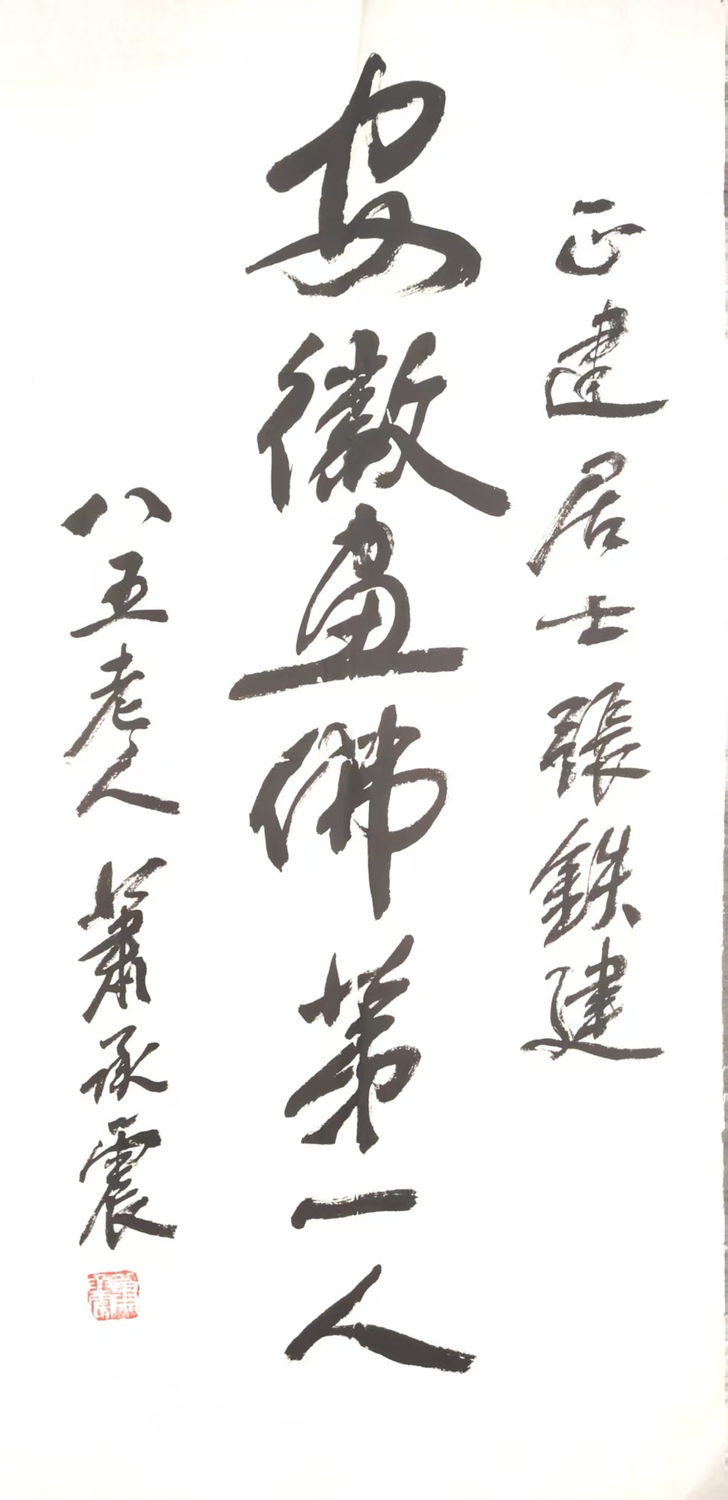 正建居士張鉄建
安徽畫佛第一人
八五老人 蕭承震